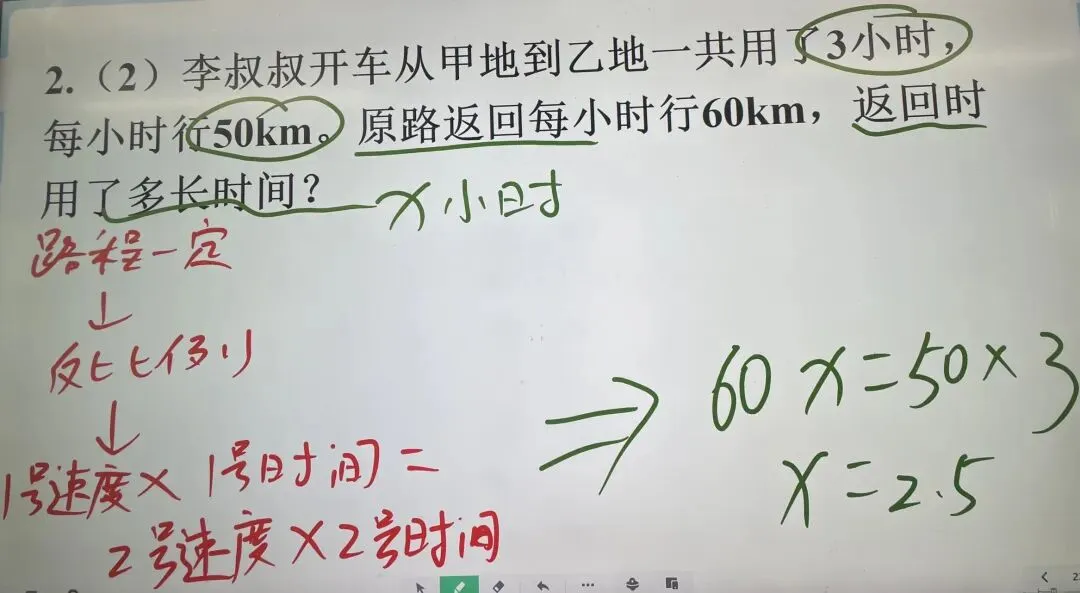 2.（2）李叔叔开车从甲地到乙地一共用了3小时，
每小时行50km。原路返回每小时行60km，返回时
用了多长时间？
x小时
路程一定
↓
反比例
↓
1号速度×1号时间=
2号速度×2号时间
⇒
60x=50×3
x=2.5